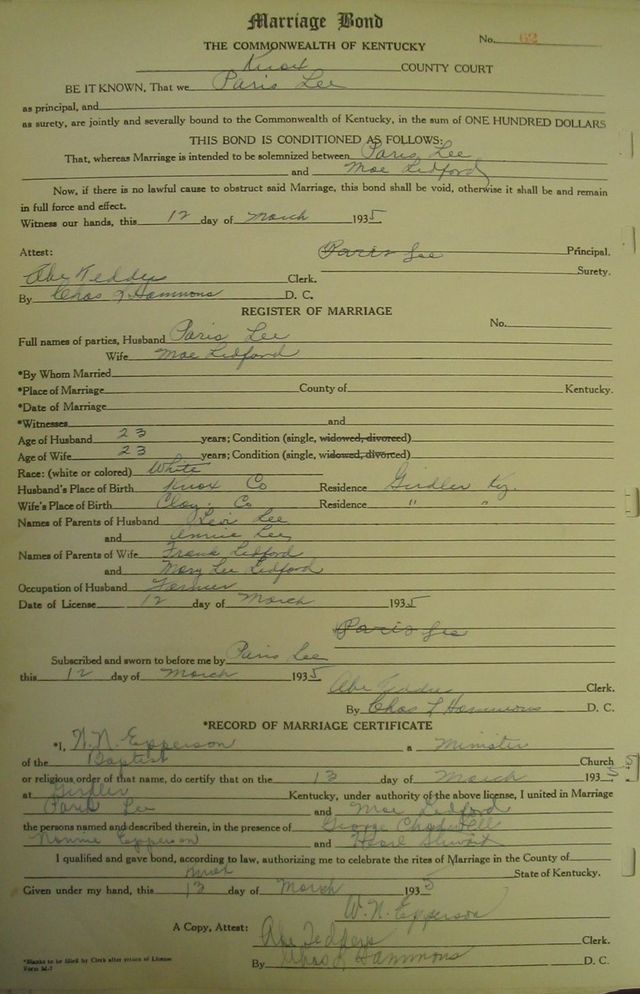 Marriage Bond
No. 62
THE COMMONWEALTH OF KENTUCKY
Knox COUNTY COURT
BE IT KNOWN, That we Paris Lee
as principal, and
as surety, are jointly and severally bound to the Commonwealth of Kentucky, in the sum of ONE HUNDRED DOLLARS
THIS BOND IS CONDITIONED AS FOLLOWS:
That, whereas Marriage is intended to be solemnized between Paris Lee
and Mae Ledford
Now, if there is no lawful cause to obstruct said Marriage, this bond shall be void, otherwise it shall be and remain
in full force and effect.
Witness our hands, this 12 day of March 1935
Attest: Paris Lee Principal.
Surety.
Abe Clerk.
By Chas Hammons D. C.
REGISTER OF MARRIAGE
No.
Full names of parties, Husband Paris Lee
Wife Mae Ledford
*By Whom Married
*Place of Marriage County of Kentucky.
*Date of Marriage
*Witnesses and
Age of Husband 23 years; Condition (single, widowed, divorced)
Age of Wife 23 years; Condition (single, widowed, divorced)
Race: (white or colored) White
Husband's Place of Birth Knox Co Residence Girdler Ky.
Wife's Place of Birth Clay Co Residence " "
Names of Parents of Husband Levi Lee
and Annie Lee
Names of Parents of Wife Frank Ledford
and Mary Lee Ledford
Occupation of Husband Farmer
Date of License 12 day of March 1935
Paris Lee
Subscribed and sworn to before me by Paris Lee
this 12 day of March 1935
Abe Clerk.
By Chas Hammons D. C.
*RECORD OF MARRIAGE CERTIFICATE
*I, W. N. Epperson a Minister
of the Baptist Church
or religious order of that name, do certify that on the 13 day of March 1935
at Girdler Kentucky, under authority of the above license, I united in Marriage
Paris Lee and Mae Ledford
the persons named and described therein, in the presence of George
Nannie Epperson and Stewart
I qualified and gave bond, according to law, authorizing me to celebrate the rites of Marriage in the County of
Knox State of Kentucky.
Given under my hand, this 13 day of March 1935
W. N. Epperson
A Copy, Attest: Abe Clerk.
By Chas Hammons D. C.
*Blanks to be filled by Clerk after return of License
Form M-7